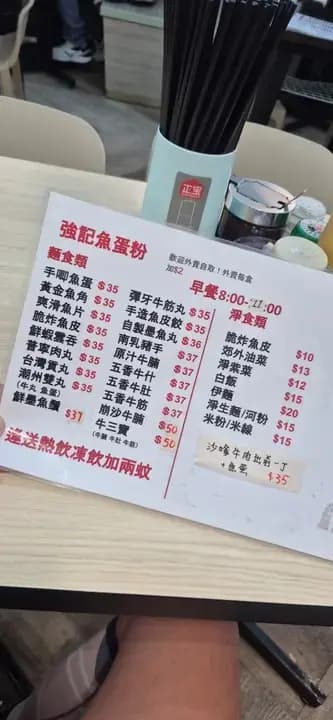 正宗
強記魚蛋粉
歡迎外賣自取！外賣每盒
加$2
早餐8:00-11:00
麵食類
手唧魚蛋 $35
黃金魚角 $35
爽滑魚片 $35
脆炸魚皮 $35
鮮蝦雲吞 $35
普寧肉丸 $35
台灣貢丸 $35
潮州雙丸 $35
(牛丸 魚蛋)
鮮墨魚鬚 $37
彈牙牛筋丸 $35
手造魚皮餃 $35
自製墨魚丸 $36
南乳豬手 $37
原汁牛腩 $37
五香牛什 $37
五香牛肚 $37
五香牛筋 $37
崩沙牛腩 $50
牛三寶 $50
(牛腩 牛肚 牛筋)
淨食類
脆炸魚皮 $10
郊外油菜 $13
淨紫菜 $12
白飯 $15
伊麵 $20
淨生麵/河粉 $15
米粉/米線 $15
沙嗲牛肉出前一丁
+魚蛋 $35
送熱飲凍飲加兩蚊